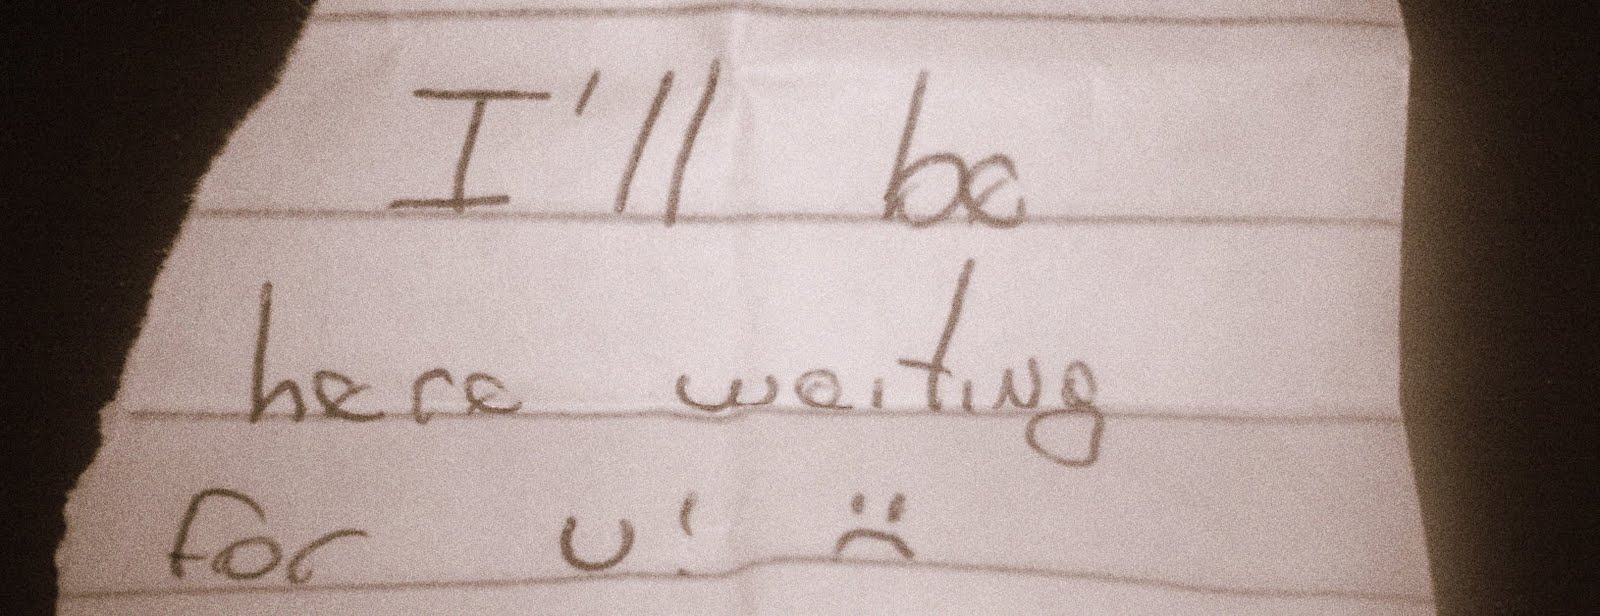 I'll be
here waiting
for u! :(